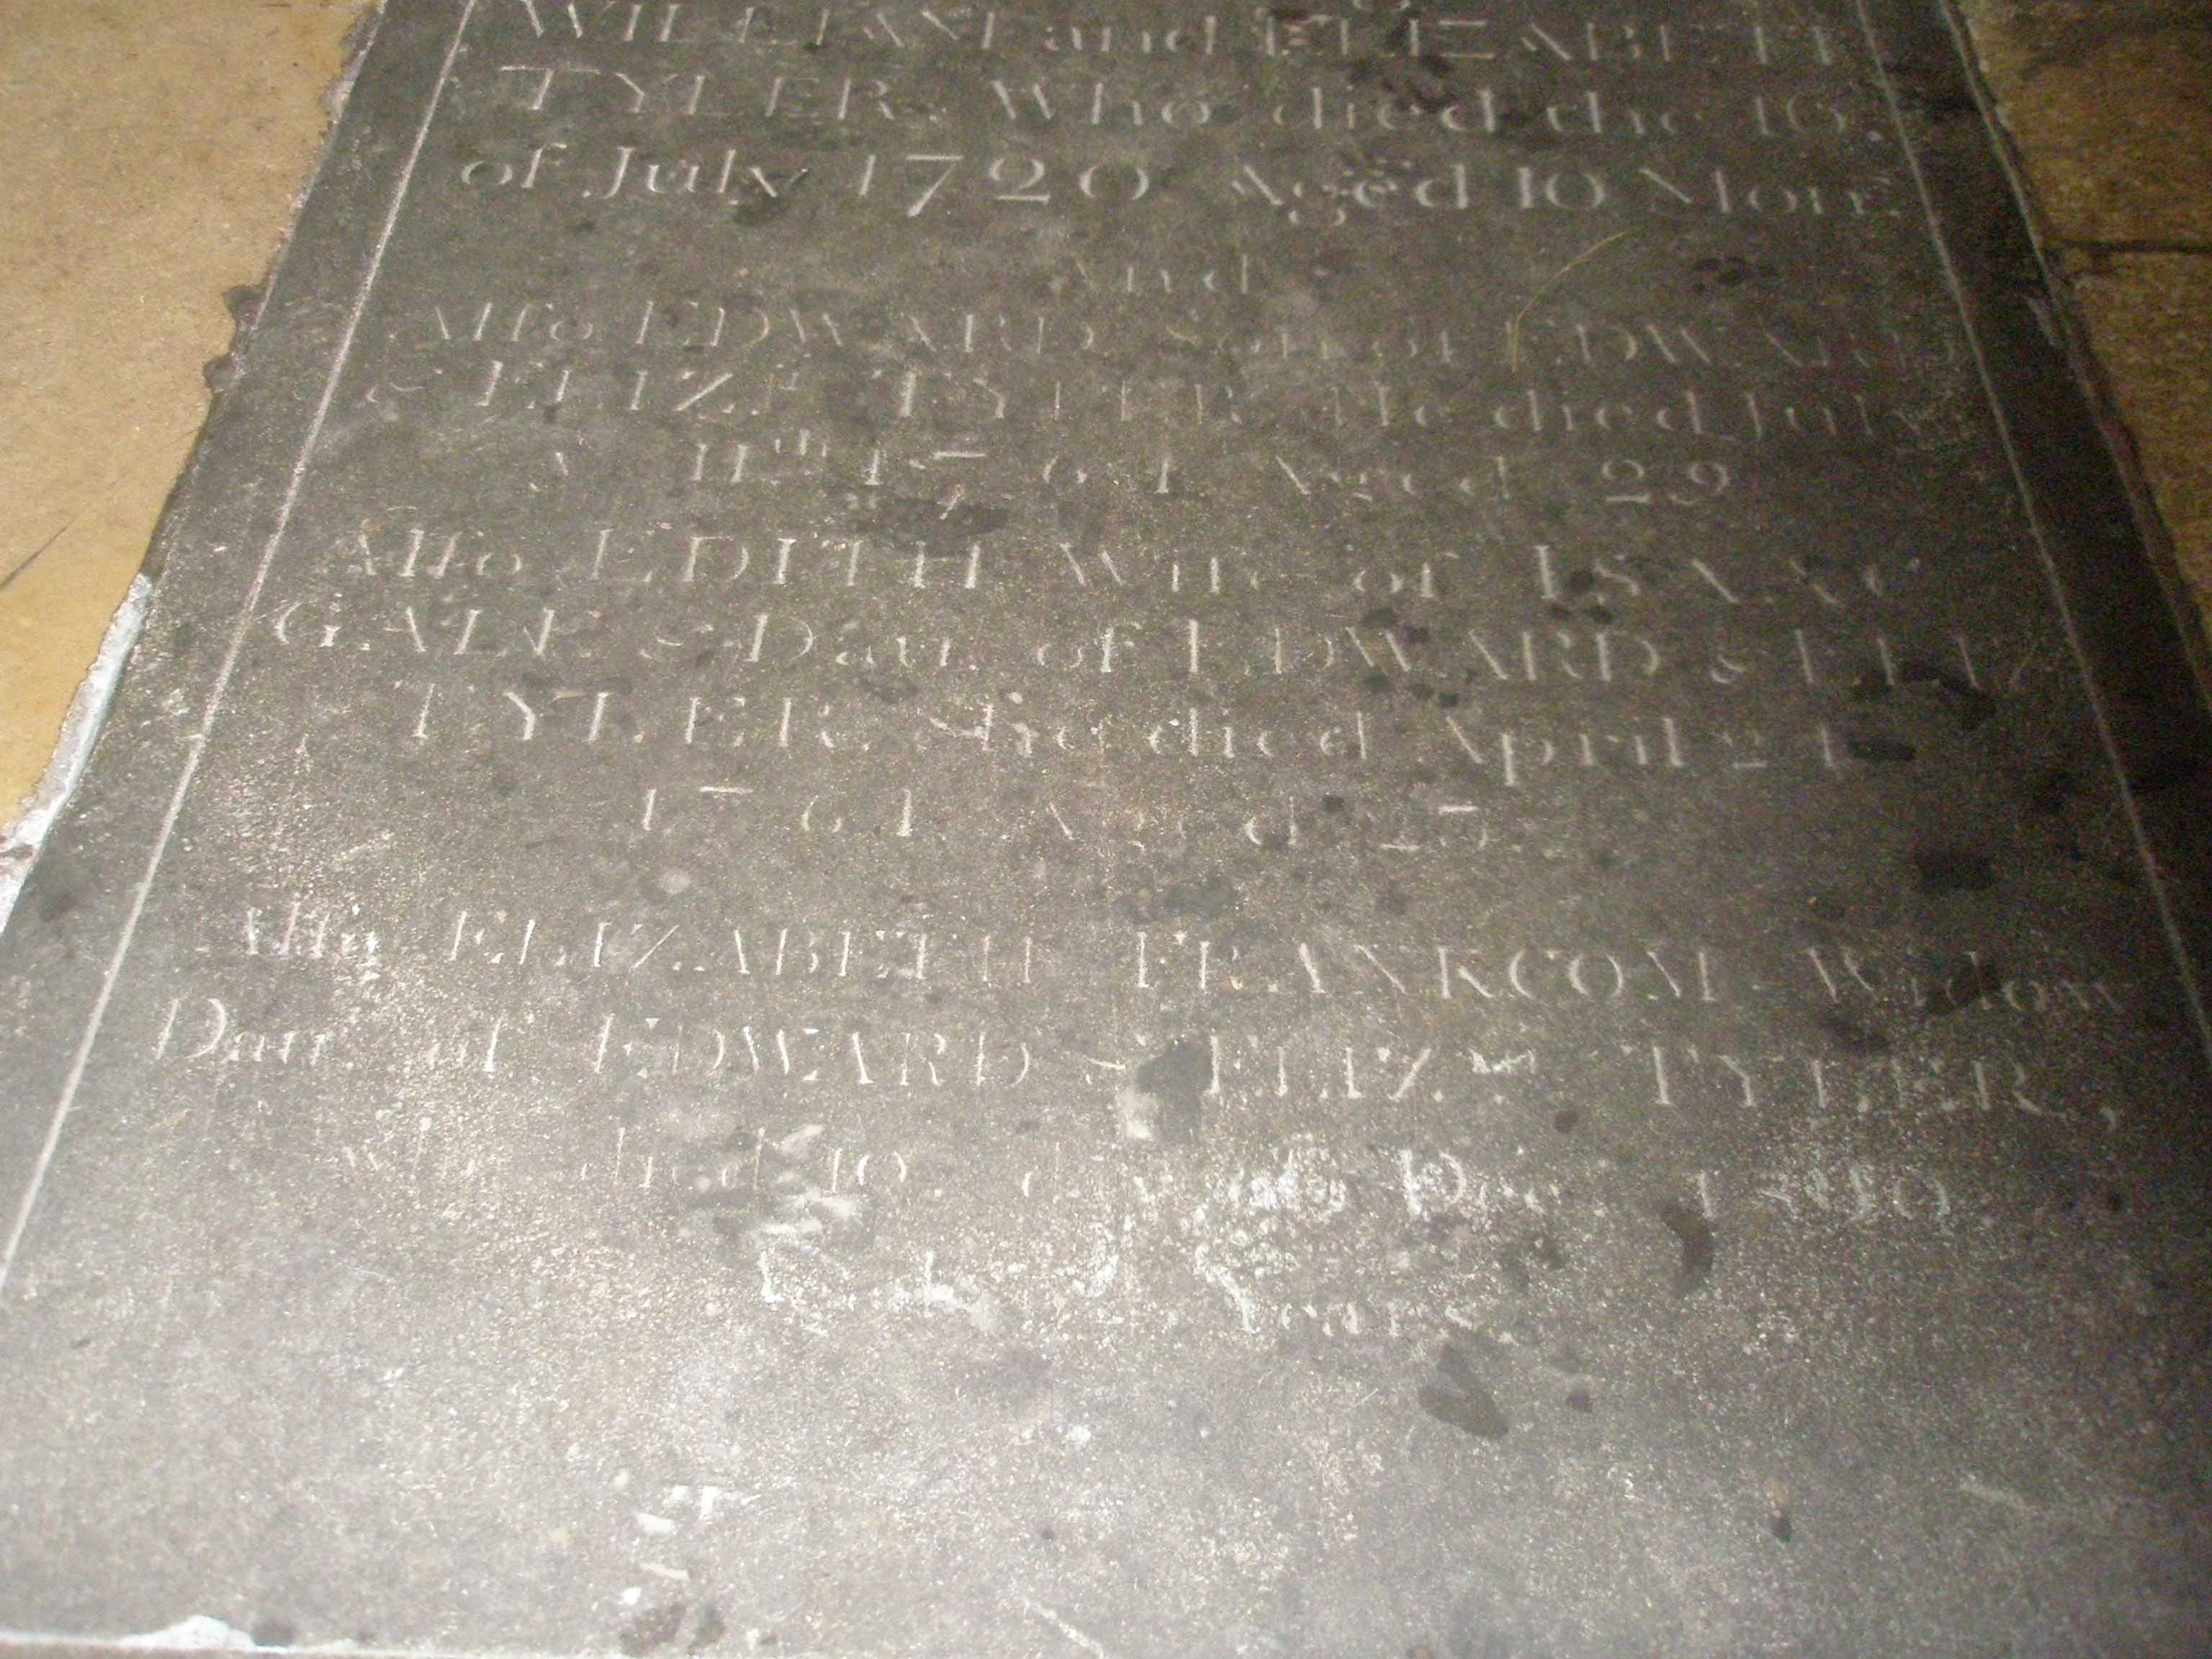 WILLIAM and ELIZABETH
TYLER, Who died the 16
of July 1720 Aged 10 Mon.
And
Also EDWARD Son of EDWARD
& ELIZ.TH TYLER He died July
11th 1761 Aged 29
Also EDITH Wife of ISAAC
GALE & Dau. of EDWARD & ELIZ
TYLER She died April 24
1761 Aged 25
Also ELIZABETH FRANKCOM Widow
Daur. of EDWARD & ELIZ.TH TYLER,
who died 10 Dec
Years.